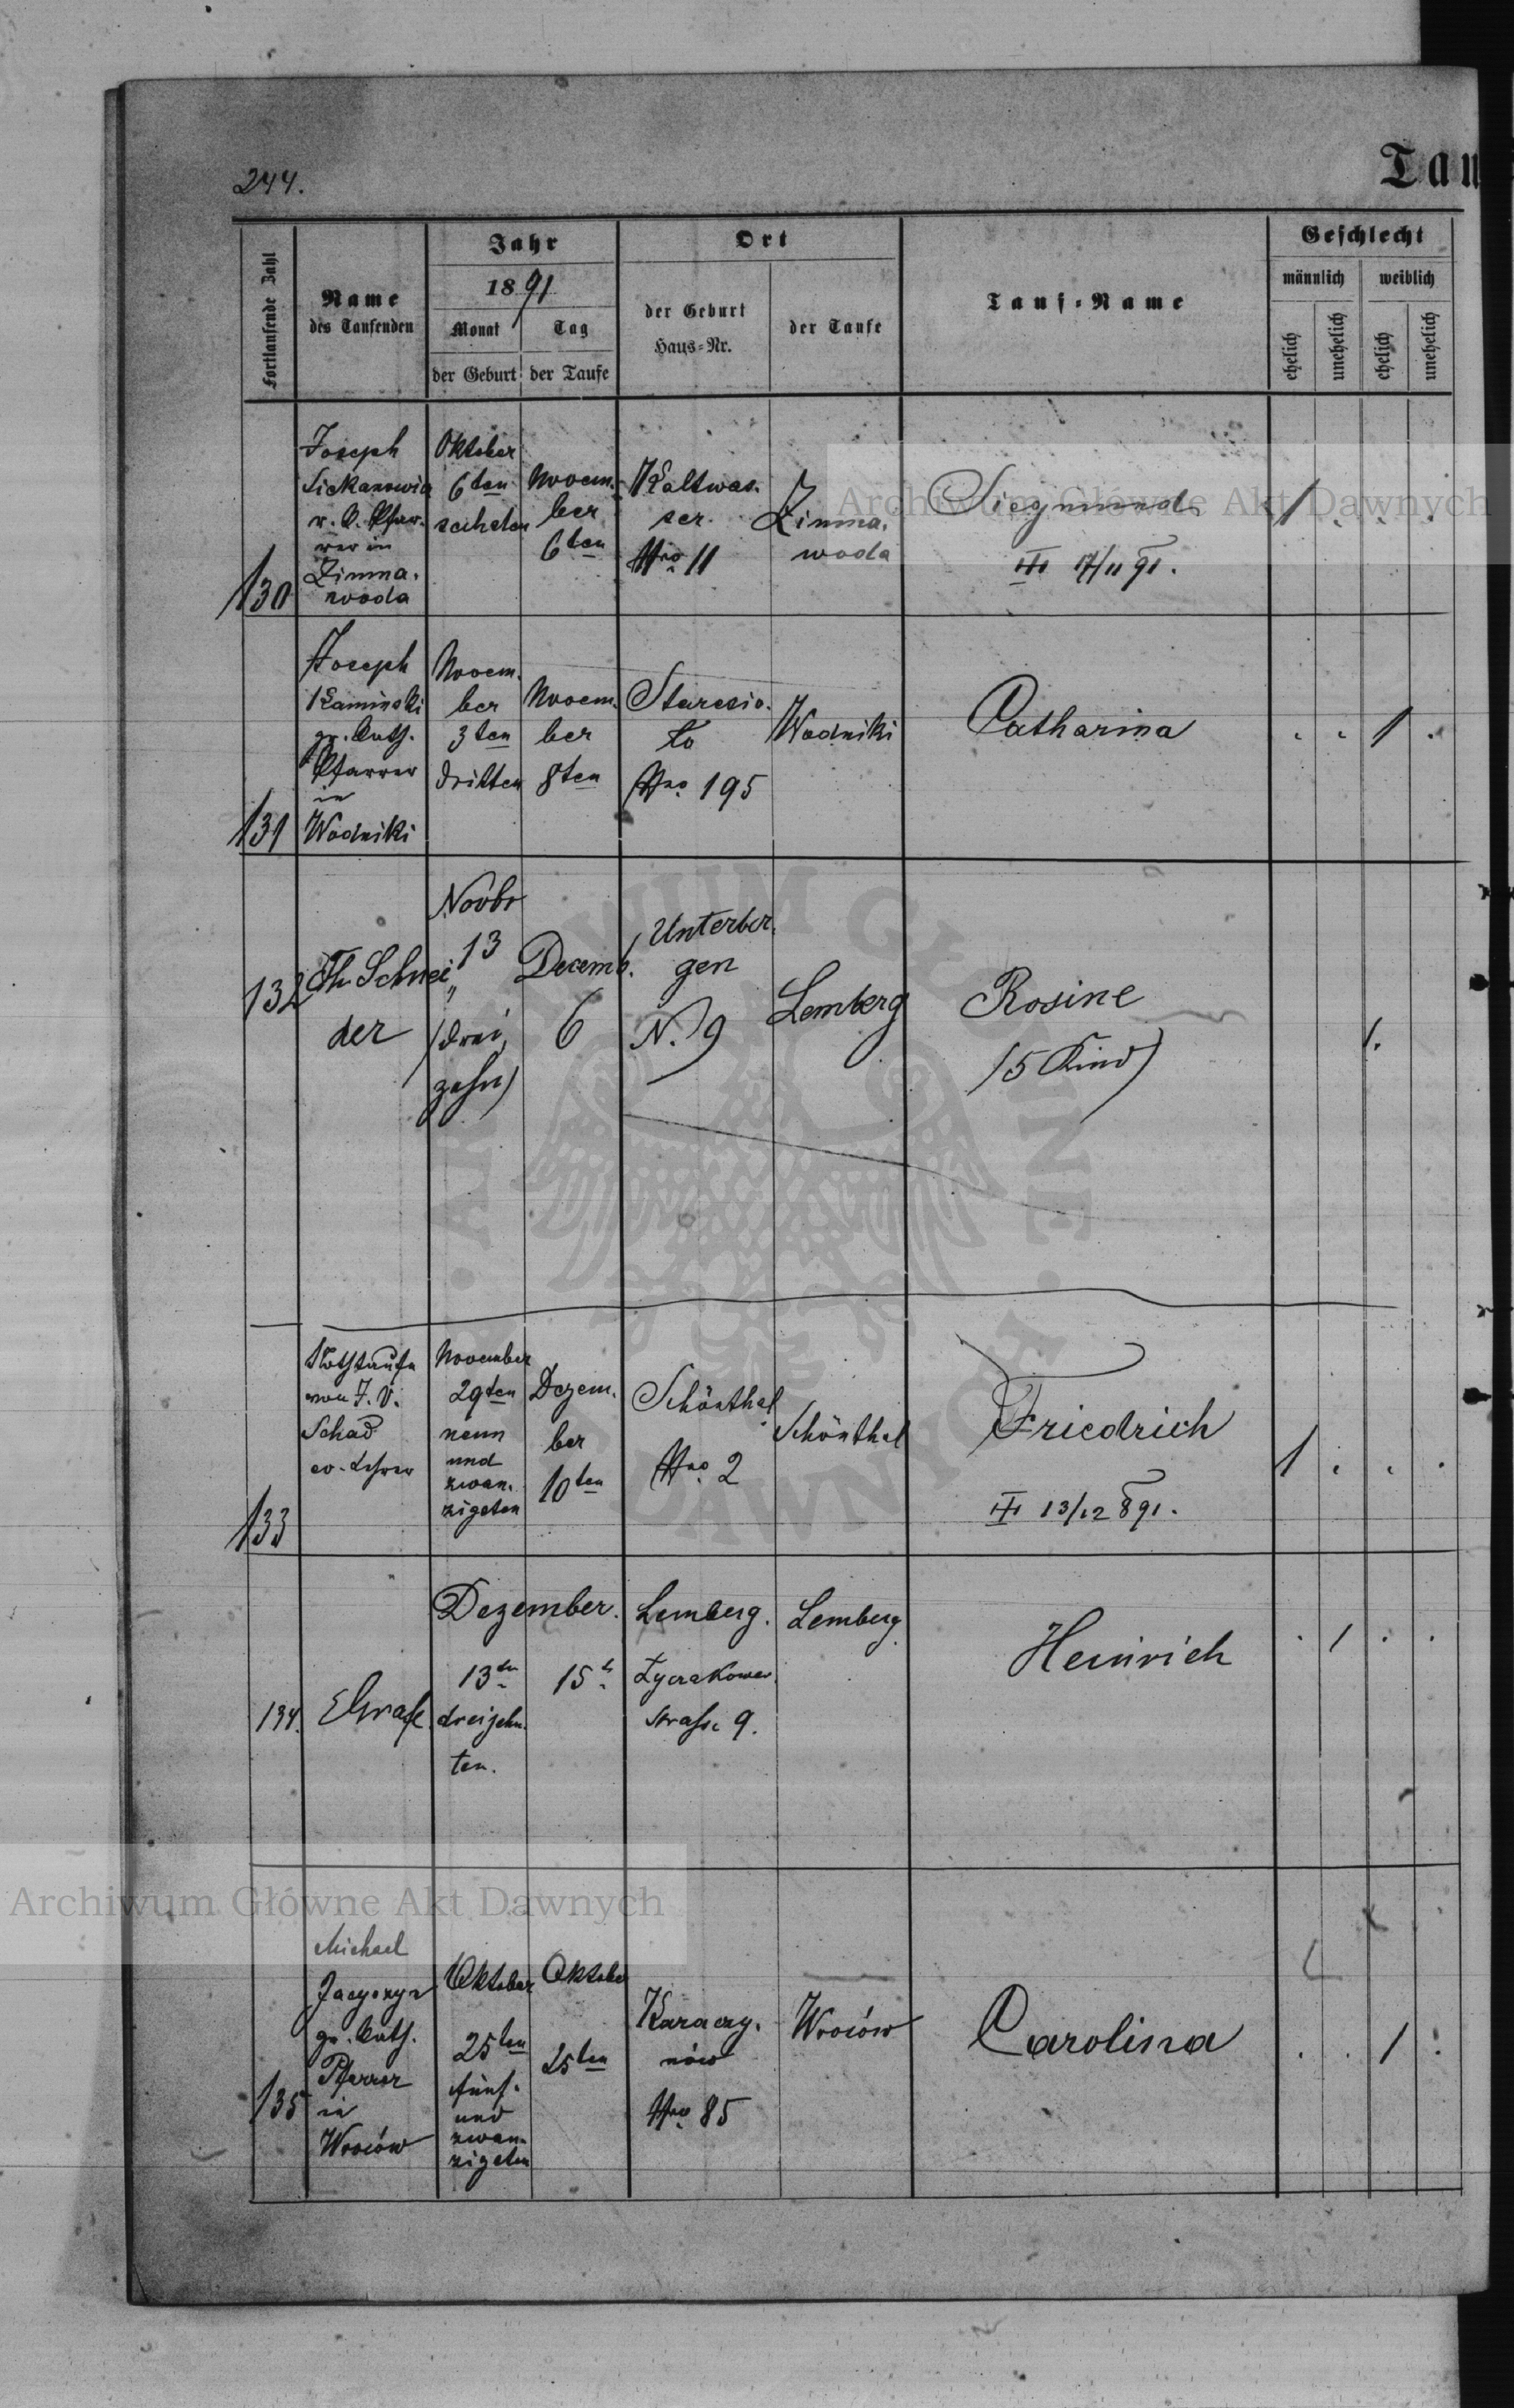 244.
Tau
Fortlaufende Zahl
Name
des Taufenden
Jahr
1891
Monat
Tag
der Geburt
der Taufe
Ort
der Geburt
Haus-Nr.
der Taufe
Tauf-Name
Geschlecht
männlich
weiblich
ehelich
unehelich
ehelich
unehelich
130
Joseph
r. C. Pfar-
rer in
Zimna-
woda
Oktober
6ten
sechsten
Novem-
ber
6ten
Kaltwas-
ser
Nro 11
Zimna-
woda
Siegmund
17/11 91.
1 . . .
131
Joseph
Kaminski
gr. Cath.
Pfarrer
in
Wodniki
Novem-
ber
3ten
dritten
Novem-
ber
8ten
Staresio-
lo
Nro 195
Wodniki
Catharina
. . 1 .
132
Th. Schnei
der
Novbr
13
(drei
zehn)
Decemb.
6
Unterber-
gen
N. 9
Lemberg
Rosine
(5 Kind)
1.
133
Nothtaufe
von J. V.
Schad
ev. Lehrer
November
29ten
neun
und
zwan-
zigsten
Dezem-
ber
10ten
Schönthal
Nro 2
Schönthal
Friedrich
13/12 891.
1 . . .
134.
Grafe
Dezember.
13ten
dreizehn-
ten.
15t
Lemberg.
Lyczakower
strasse 9.
Lemberg
Heinrich
. 1 . .
135
Michael
gr. Cath.
Pfarrer
in
Wroców
Oktober
25ten
fünf-
und
zwan-
zigsten
Oktober
25ten
Karaczy-
nów
Nro 85
Wroców
Carolina
. . 1 .
Archiwum Główne Akt Dawnych
Archiwum Główne Akt Dawnych
ARCHIWUM GŁÓWNE AKT DAWNYCH